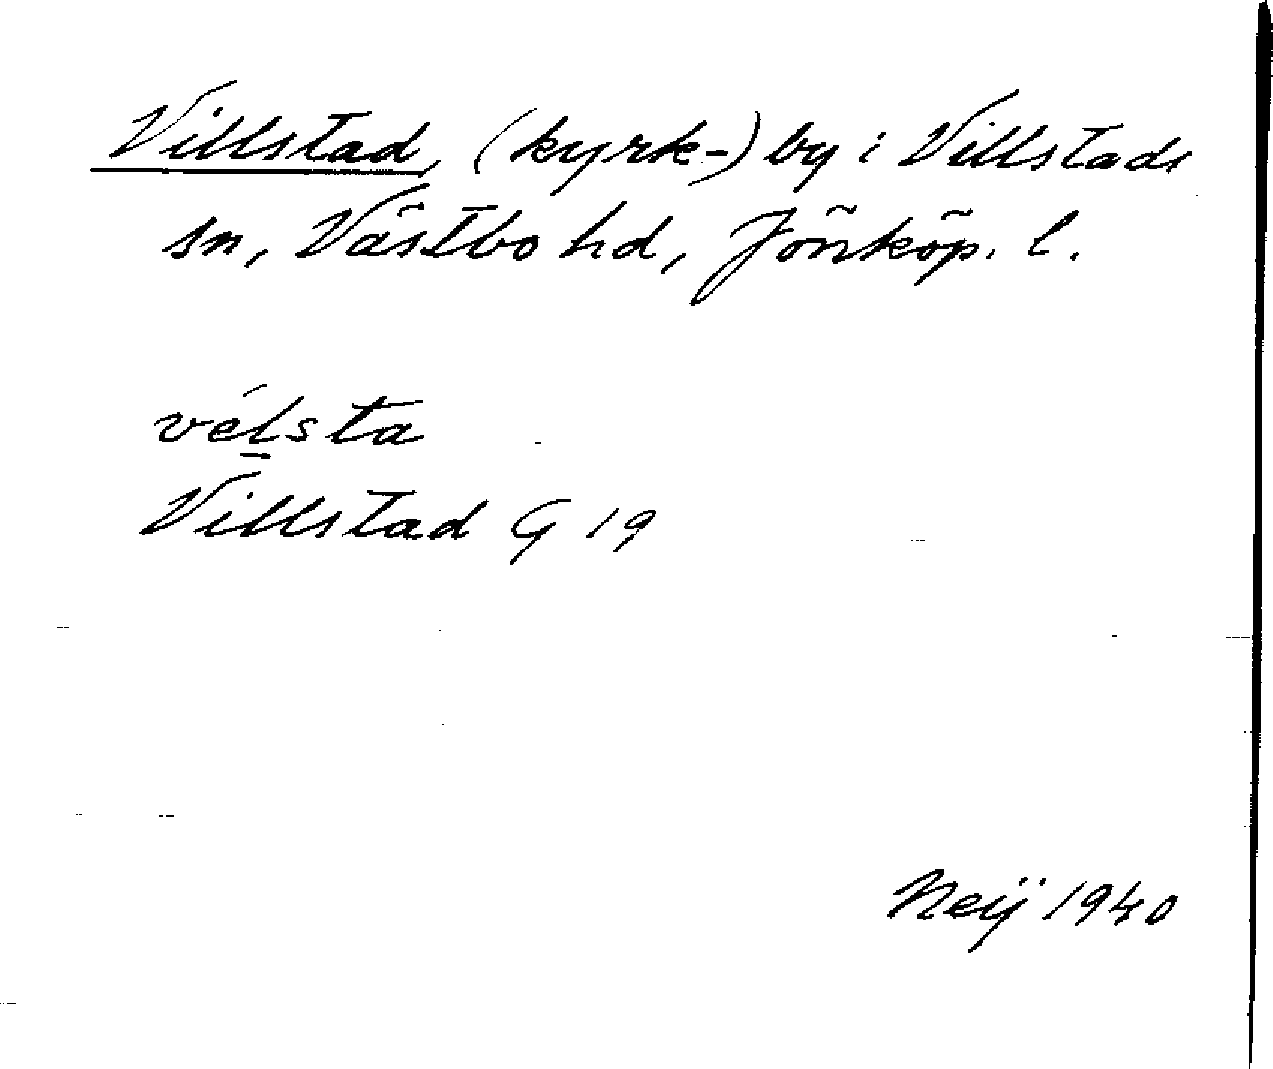 Villstad, (kyrk-) by i Villstads
sn, Västbo hd, Jönköp. l.
vélsta
Villstad G 19
Neij 1940